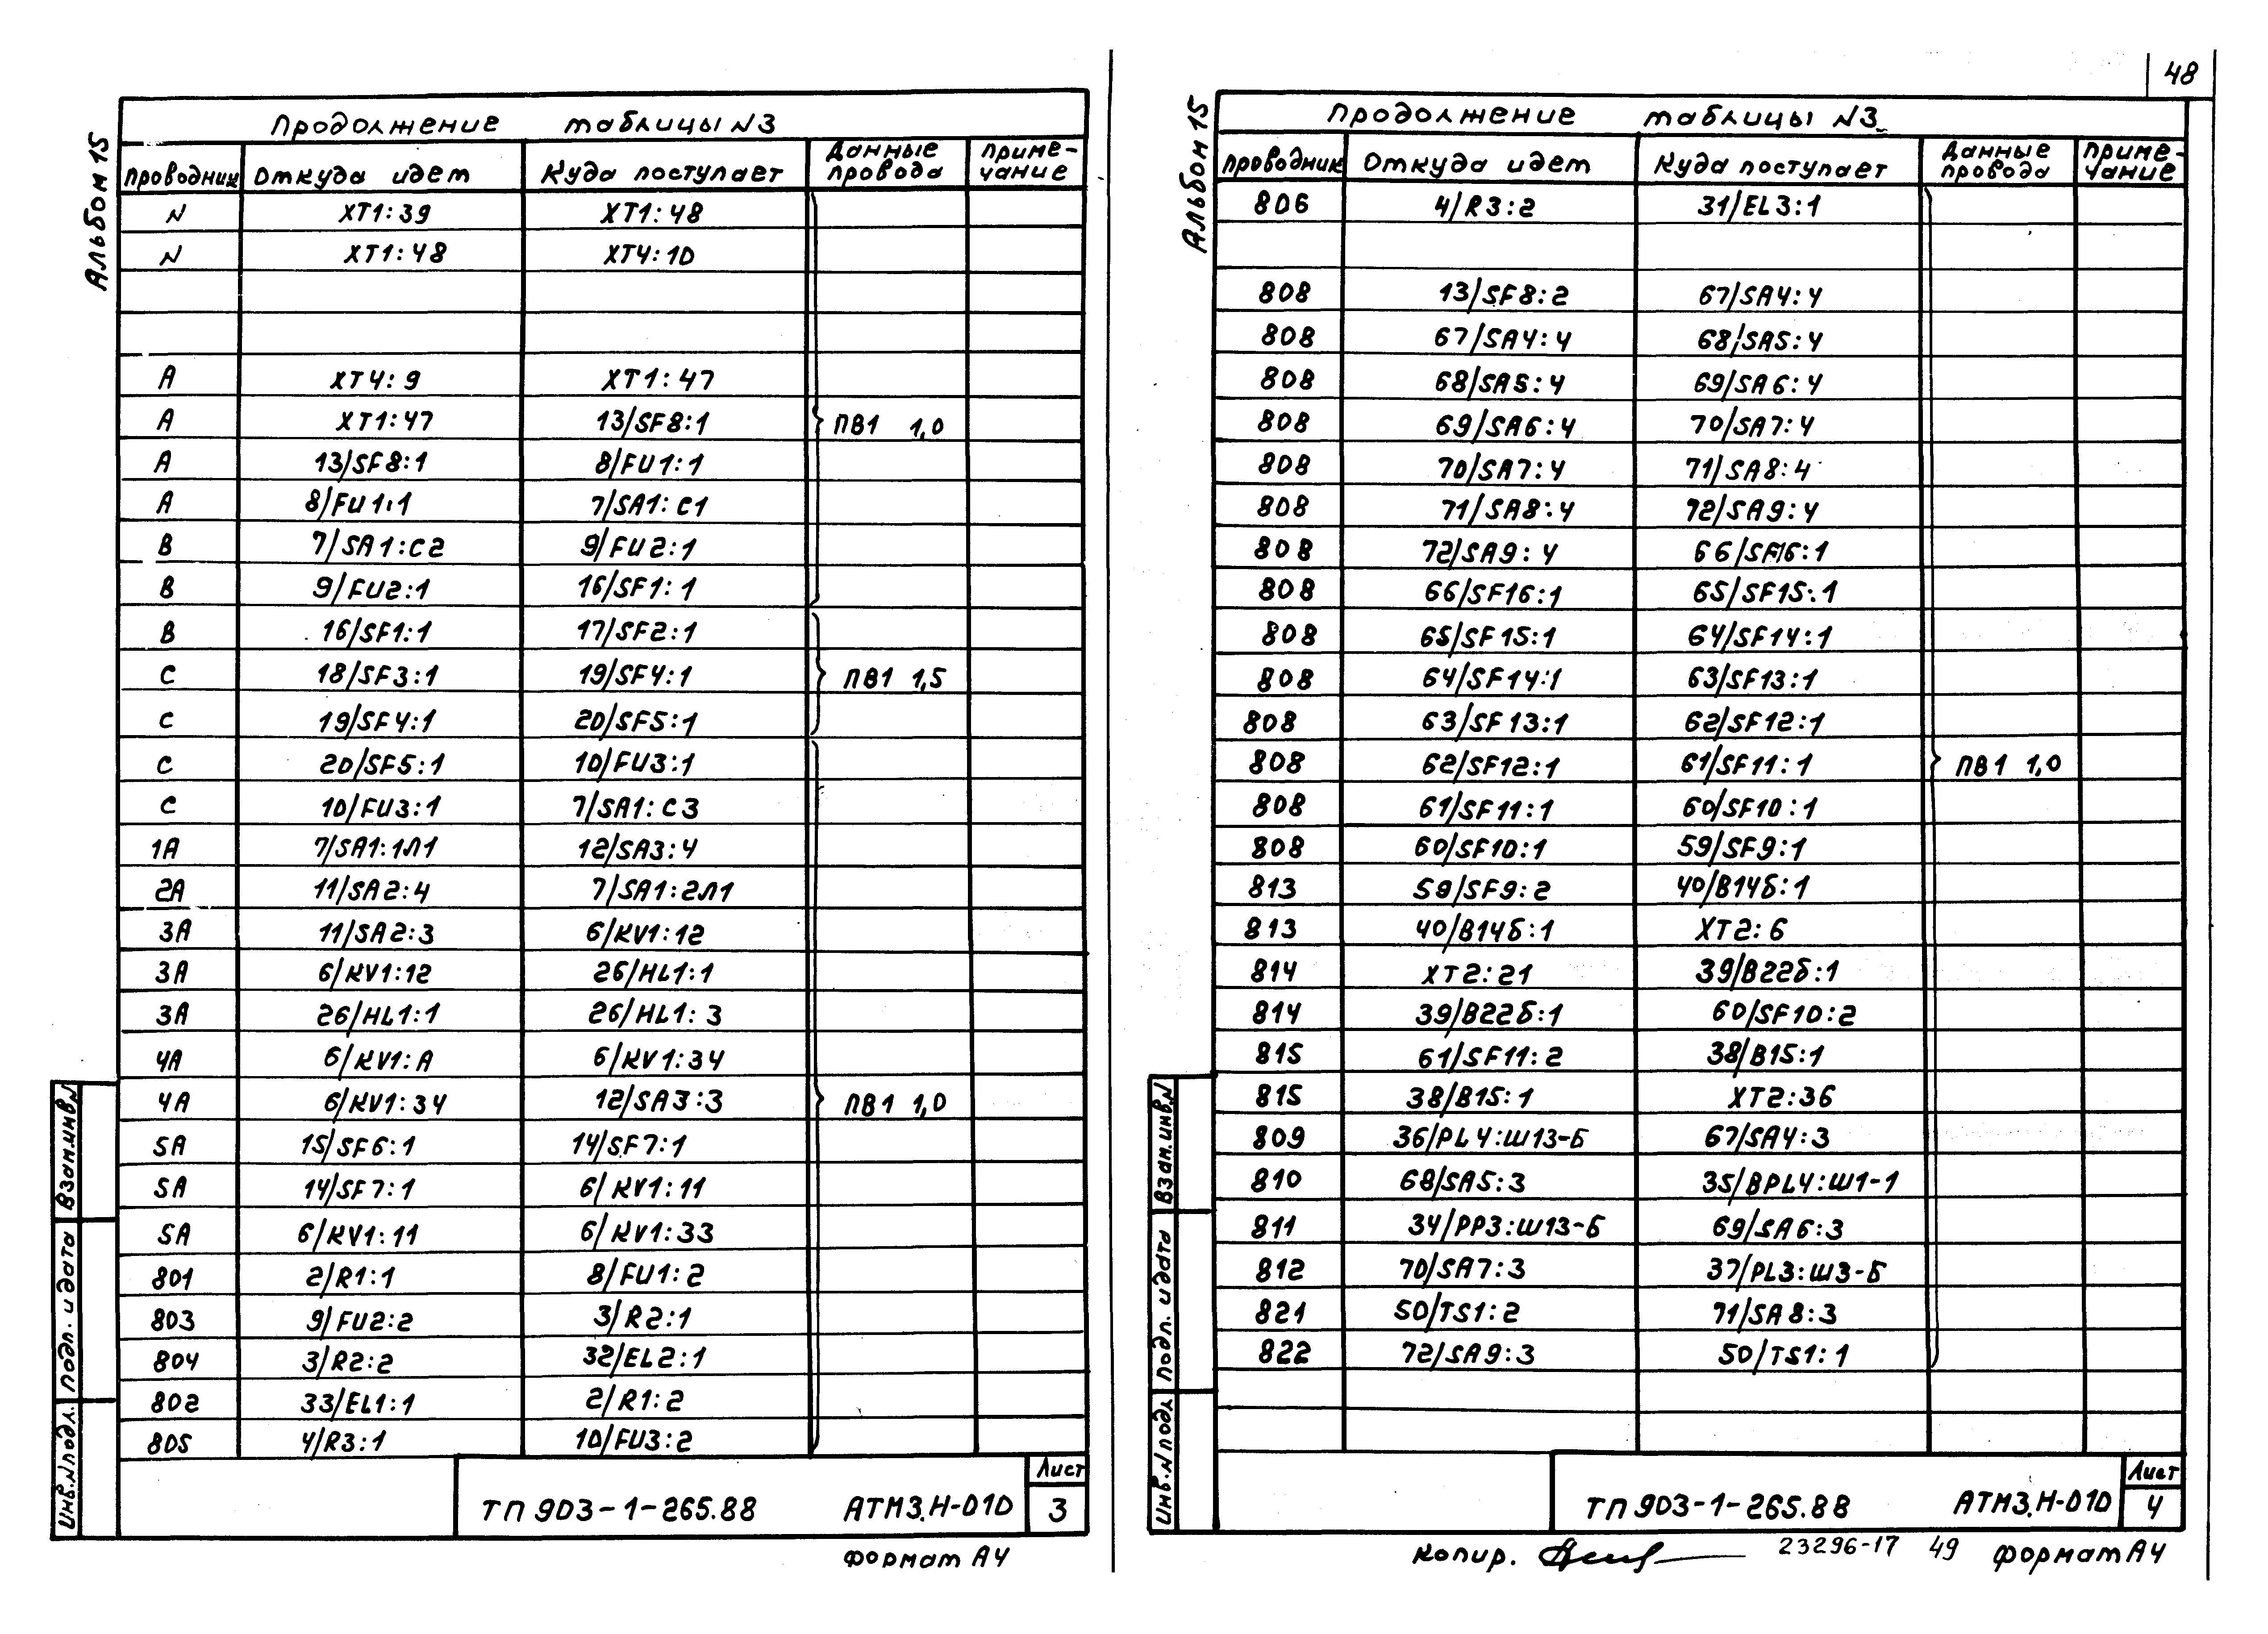 48
Альбом 15
Продолжение таблицы N3
Проводник Откуда идет Куда поступает Данные провода Приме-чание
N XT1:39 XT1:48
N XT1:48 XT4:10
A XT4:9 XT1:47
A XT1:47 13/SF8:1 ПВ1 1,0
A 13/SF8:1 8/FU1:1
A 8/FU1:1 7/SA1:C1
B 7/SA1:C2 9/FU2:1
B 9/FU2:1 16/SF1:1
B 16/SF1:1 17/SF2:1
C 18/SF3:1 19/SF4:1 ПВ1 1,5
C 19/SF4:1 20/SF5:1
C 20/SF5:1 10/FU3:1
C 10/FU3:1 7/SA1:C3
1A 7/SA1:1Л1 12/SA3:4
2A 11/SA2:4 7/SA1:2Л1
3A 11/SA2:3 6/KV1:12
3A 6/KV1:12 26/HL1:1
3A 26/HL1:1 26/HL1:3
4A 6/KV1:A 6/KV1:34
4A 6/KV1:34 12/SA3:3 ПВ1 1,0
5A 15/SF6:1 14/SF7:1
5A 14/SF7:1 6/KV1:11
5A 6/KV1:11 6/KV1:33
801 2/R1:1 8/FU1:2
803 9/FU2:2 3/R2:1
804 3/R2:2 32/EL2:1
802 33/EL1:1 2/R1:2
805 4/R3:1 10/FU3:2
Взам.инв.N
Подп. и дата
Инв.Nподл.
ТП 903-1-265.88 АТМ3.Н-010
Лист
3
Формат А4
Альбом 15
Продолжение таблицы N3
Проводник Откуда идет Куда поступает Данные провода Приме-чание
806 4/R3:2 31/EL3:1
808 13/SF8:2 67/SA4:4
808 67/SA4:4 68/SA5:4
808 68/SA5:4 69/SA6:4
808 69/SA6:4 70/SA7:4
808 70/SA7:4 71/SA8:4
808 71/SA8:4 72/SA9:4
808 72/SA9:4 66/SF16:1
808 66/SF16:1 65/SF15:1
808 65/SF15:1 64/SF14:1
808 64/SF14:1 63/SF13:1
808 63/SF13:1 62/SF12:1
808 62/SF12:1 61/SF11:1 ПВ1 1,0
808 61/SF11:1 60/SF10:1
808 60/SF10:1 59/SF9:1
813 59/SF9:2 40/B14б:1
813 40/B14б:1 XT2:6
814 XT2:21 39/B22б:1
814 39/B22б:1 60/SF10:2
815 61/SF11:2 38/B15:1
815 38/B15:1 XT2:36
809 36/PL4:Ш13-Б 67/SA4:3
810 68/SA5:3 35/BPL4:Ш1-1
811 34/PP3:Ш13-Б 69/SA6:3
812 70/SA7:3 37/PL3:Ш3-Б
821 50/TS1:2 71/SA8:3
822 72/SA9:3 50/TS1:1
Взам.инв.N
Подп. и дата
Инв.Nподл
ТП 903-1-265.88 АТМ3.Н-010
Лист
4
Копир. 23296-17 49 Формат А4